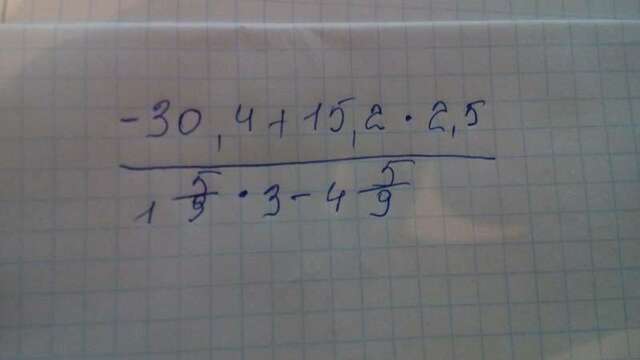 -30,4+15,2·2,5
1 5/9 · 3 - 4 5/9